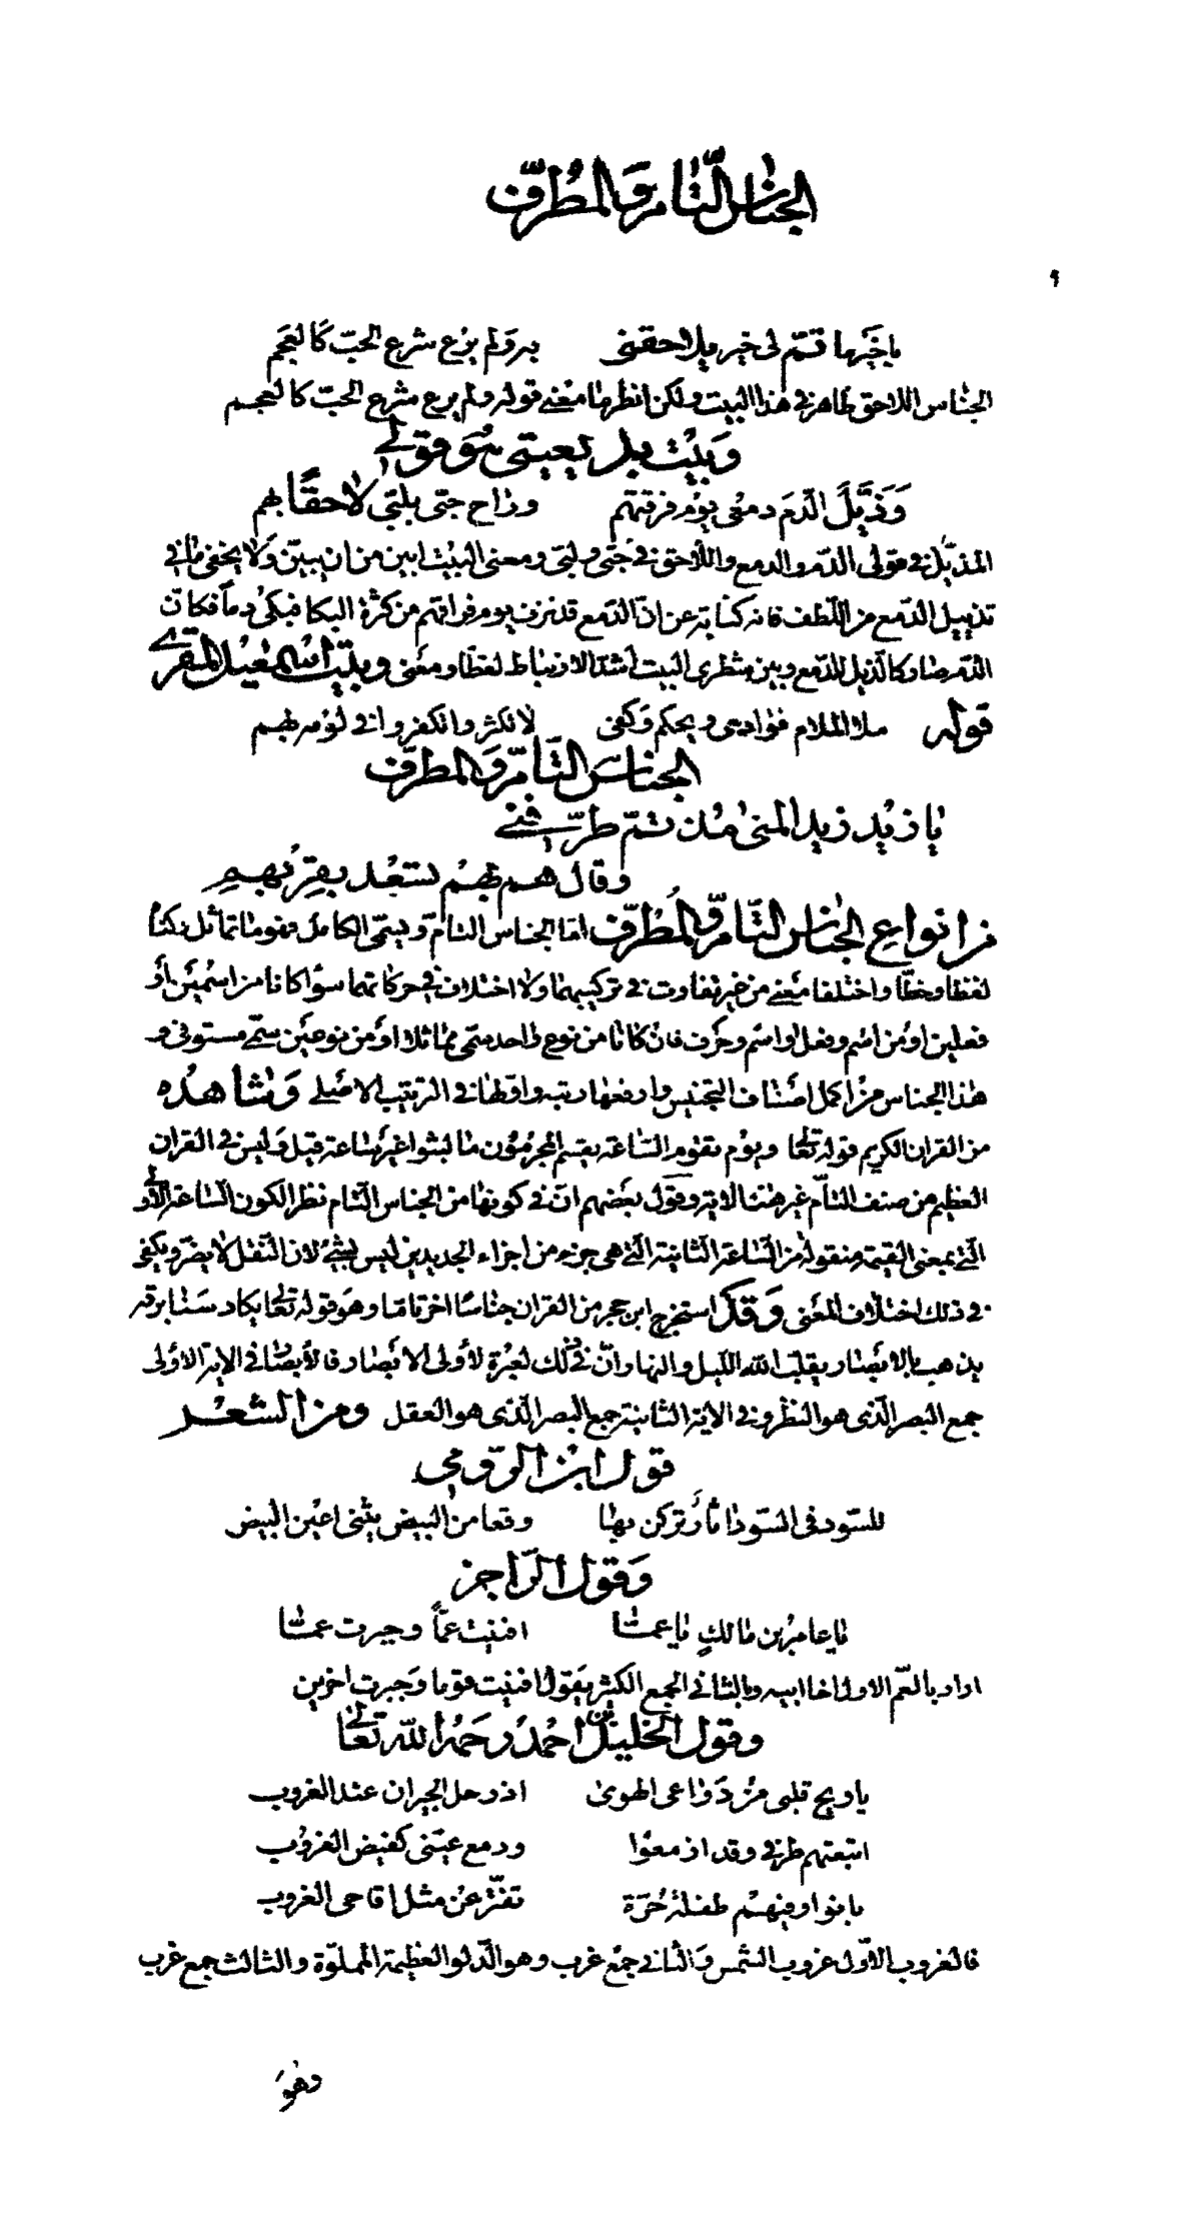 الجناس التام والمطرف
٩
يا خيرها قسم لى خير يلاحقنى بر ولم يرع شرع الحب كالعجم
الجناس اللاحق ظاهر فى هذا البيت ولكن انظر ما معنى قوله ولم يرع شرع الحب كالعجم
وبيت بديعيتى هو قولى
وذيّل الدمَ دمعى يوم فرقتهم وراح حبى بلبى لاحقًا بهم
المذيل فى قولى الدم والدمع واللاحق فى حبى ولبى ومعنى البيت ابين من ان يبين ولا يخفى ما فى
تذييل الدمع من اللطف فانه كناية عن ان الدمع قد نزف يوم فراقهم من كثرة البكا فبكى دماً فكان
الدم صار كالذيل للدمع وبين شطرى البيت اشد الارتباط لفظا ومعنى وبيت اسمعيل المقرى
قوله ملا الملام فؤادى ويحكم وكفى لا تكثروا تكفروا فى لؤمهم
الجناس التام والمطرف
يا زيد زيد المنى مذ تم طرفنى
وقال هم بهم تسعد بقربهم
من انواع الجناس التام والمطرف اما الجناس التام ويسمى الكامل فهو ما تماثل ركناه
لفظا وخطا واختلفا معنى من غير تفاوت فى تركيبهما ولا اختلاف فى حركاتهما سوا كانا من اسمين او
فعلين او من اسم وفعل او اسم وحرف فان كانا من نوع واحد سمى مماثلا او من نوعين سمى مستوفى و
هذا الجناس من اكمل اصناف التجنيس وارفعها رتبه واولها فى الترتيب الاصلى وشاهده
من القران الكريم قوله تعالى ويوم تقوم الساعة يقسم المجرمون ما لبثوا غير ساعة قيل وليس فى القران
العظيم من صنف التام غير هذه الاية وقول بعضهم ان فى كونها من الجناس التام نظر الكون الساعة الاولى
التى بمعنى القيمة منقولة من الساعة الثانية التى هى جزء من اجزاء الجديدين ليس بشئ لان النقل لا يضر ويكفى
فى ذلك اختلاف المعنى وقد استخرج ابن حجر من القران جناسا اخر تاما وهو قوله تعالى يكاد سنا برقه
يذهب بالابصار يقلب الله الليل والنهار ان فى ذلك لعبرة لاولى الابصار فالابصار فى الاية الاولى
جمع البصر الذى هو النظر وفى الاية الثانية جمع البصر الذى هو العقل ومن الشعر
قول ابن الرومى
للسود فى السود اثار تركن بها وقعا من البيض يثنى اعين البيض
وقول الراجز
يا عامر بن مالك يا عما افنيت عماً وجبرت عما
اراد بالعم الاول اخا ابيه وبالثانى الجمع الكثير يقول افنيت قوما وجبرت اخرين
وقول الخليل بن احمد رحمه الله تعالى
يا ويح قلبى من دواعى الهوى اذ رحل الجيران عند الغروب
اتبعتهم طرفى وقد ازمعوا ودمع عينى كفيض الغروب
بانوا وفيهم طفلة حرة تفتر عن مثل اقاحى الغروب
فالغروب الاول غروب الشمس والثانى جمع غرب وهو الدلو العظيمة المملوة والثالث جمع غرب
وهو